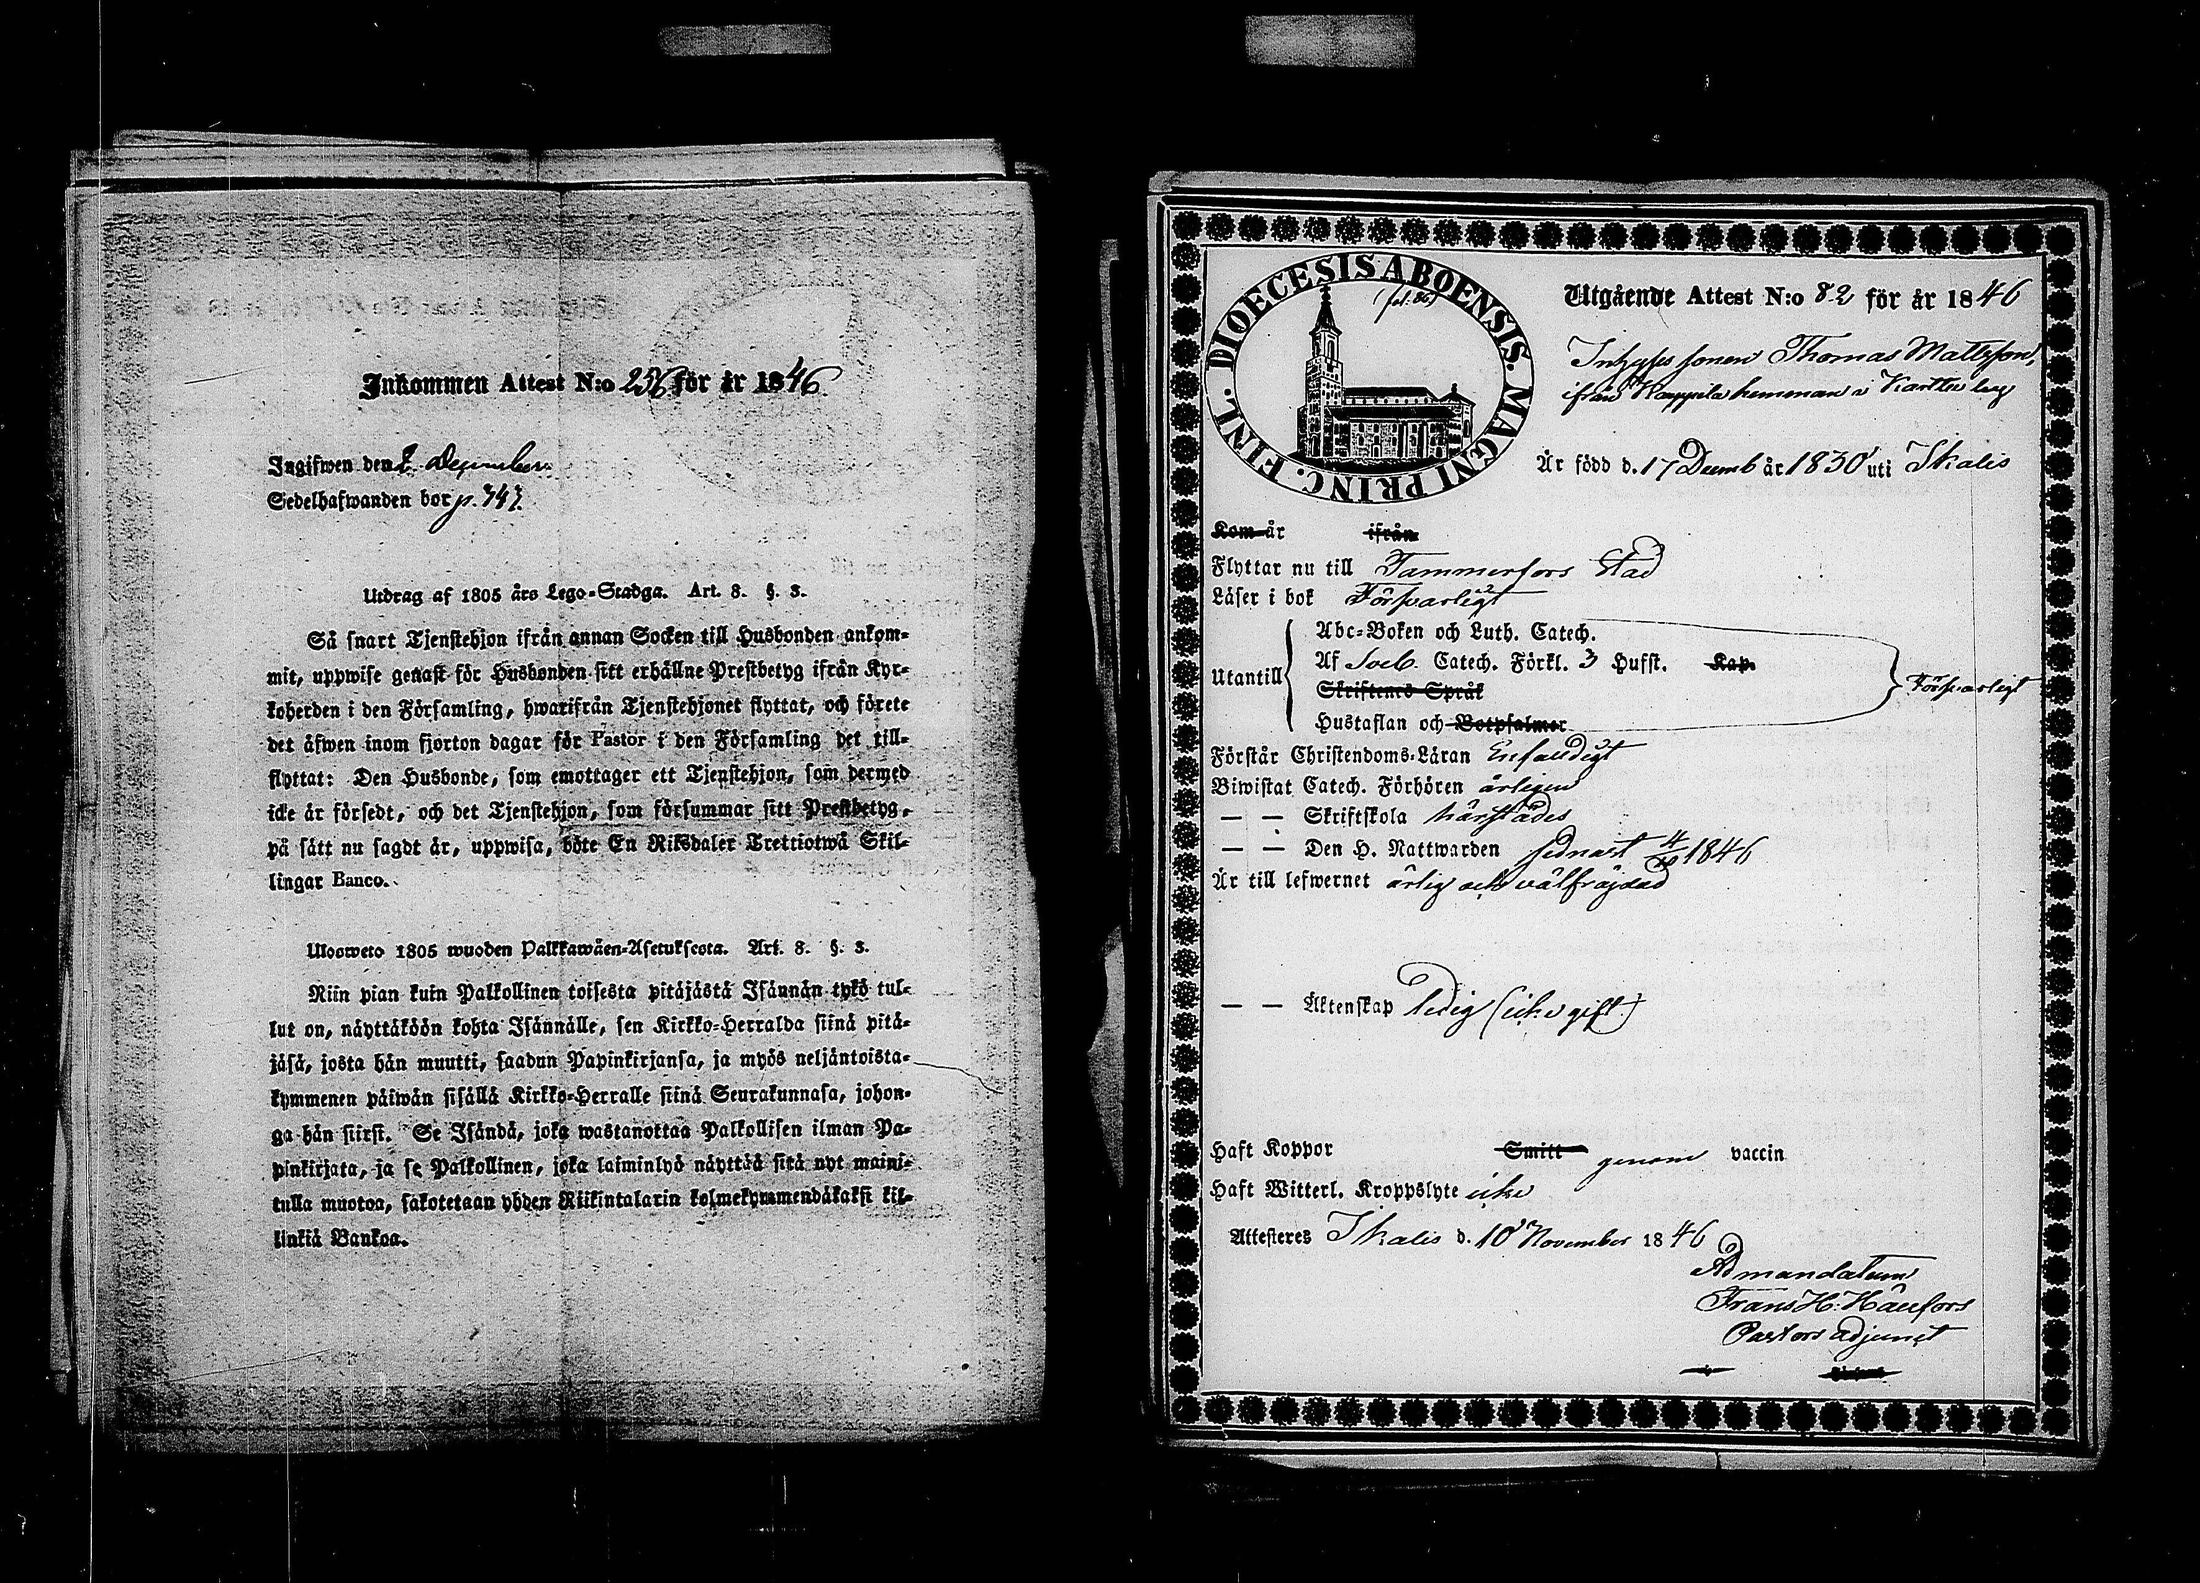 Inkommen Attest N:o 256 för år 1846.
Ingifwen den 2 December
Sedelhafwanden bor p. 747.
Utdrag af 1805 års Lego-Stadga. Art. 8. §. 3.
Så snart Tjenstehjon ifrån annan Socken till Husbonden ankom-
mit, uppwise genast för Husbonden sitt erhållne Prestbetyg ifrån Kyr-
koherden i den Församling, hwarifrån Tjenstehjonet flyttat, och förete
det äfwen inom fjorton dagar för Pastor i den Församling det till-
flyttat: Den Husbonde, som emottager ett Tjenstehjon, som dermed
icke är försedt, och det Tjenstehjon, som försummar sitt Prestbetyg,
på sätt nu sagdt är, uppwisa, böte En Riksdaler Trettiotwå Skil-
lingar Banco.
Ulosweto 1805 wuoden Palkkawäen-Asetuksesta. Art. 8. §. 3.
Niin pian kuin Palkollinen toisesta pitäjästä Isännän tykö tul-
lut on, näyttäköön kohta Isännälle, sen Kirkko-Herralda siinä pitä-
jäsä, josta hän muutti, saadun Papinkirjansa, ja myös neljäntoista-
kymmenen päiwän sisällä Kirkko-Herralle siinä Seurakunnasa, johon-
ga hän siirst. Se Isändä, joka wastanottaa Palkollisen ilman Pa-
pinkirjata, ja se Palkollinen, joka laiminlyö näyttää sitä nyt maini-
tulla muotoa, sakotetaan yhden Riikintalarin kolmekymmendäkaksi kil-
linkiä Bankoa.
DIOECESIS ABOENSIS. MAGNI PRINC. FINL.
(fol. 86)
Utgående Attest N:o 82 för år 1846
Inhyses sonen Thomas Mattsson,
ifrån Kappela hemman i Karttu by
Är född d. 17 Decemb år 1830 uti Ikalis
Kom år ifrån
Flyttar nu till Tammerfors Stad
Läser i bok Försvarligt
Abc-Boken och Luth. Catech.
Utantill Af Soeb. Catech. Förkl. 3 Hufst. Kap. Försvarligt
Skriftenes Språk
Hustaflan och Botpsalmer
Förstår Christendoms-Läran Enfaldigt
Biwistat Catech. Förhören årligen
— — Skriftskola härstädes
— — Den H. Nattwarden sednast 4/10 1846
Är till lefwernet ärlig och välfräjdad
— — Äktenskap ledig (icke gift)
Haft Koppor Smitt genom vaccin
Haft Witterl. Kroppslyte icke
Attesteres Ikalis d. 10 November 1846
Ad mandatum
Frans H. Hällfors
Pastors adjunct